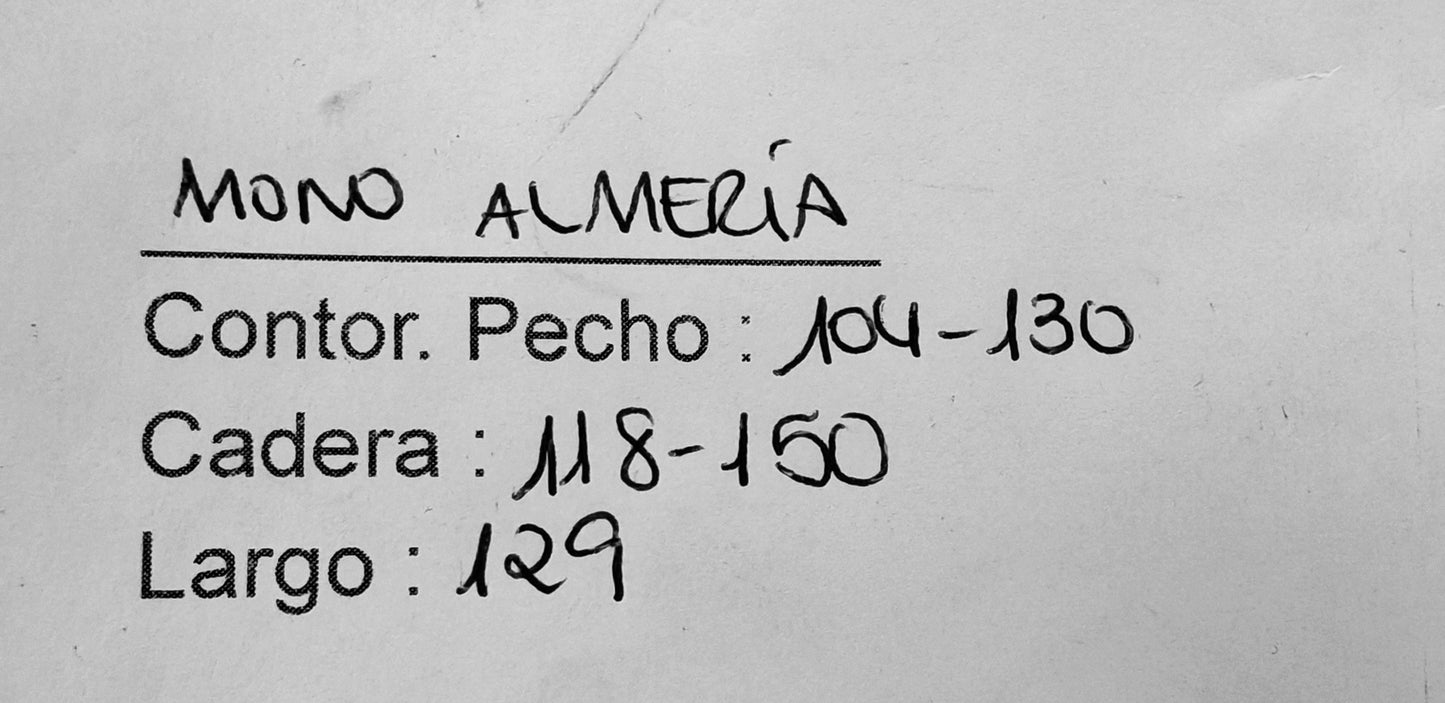 MONO ALMERÍA
Contor. Pecho : 104-130
Cadera : 118-150
Largo : 129